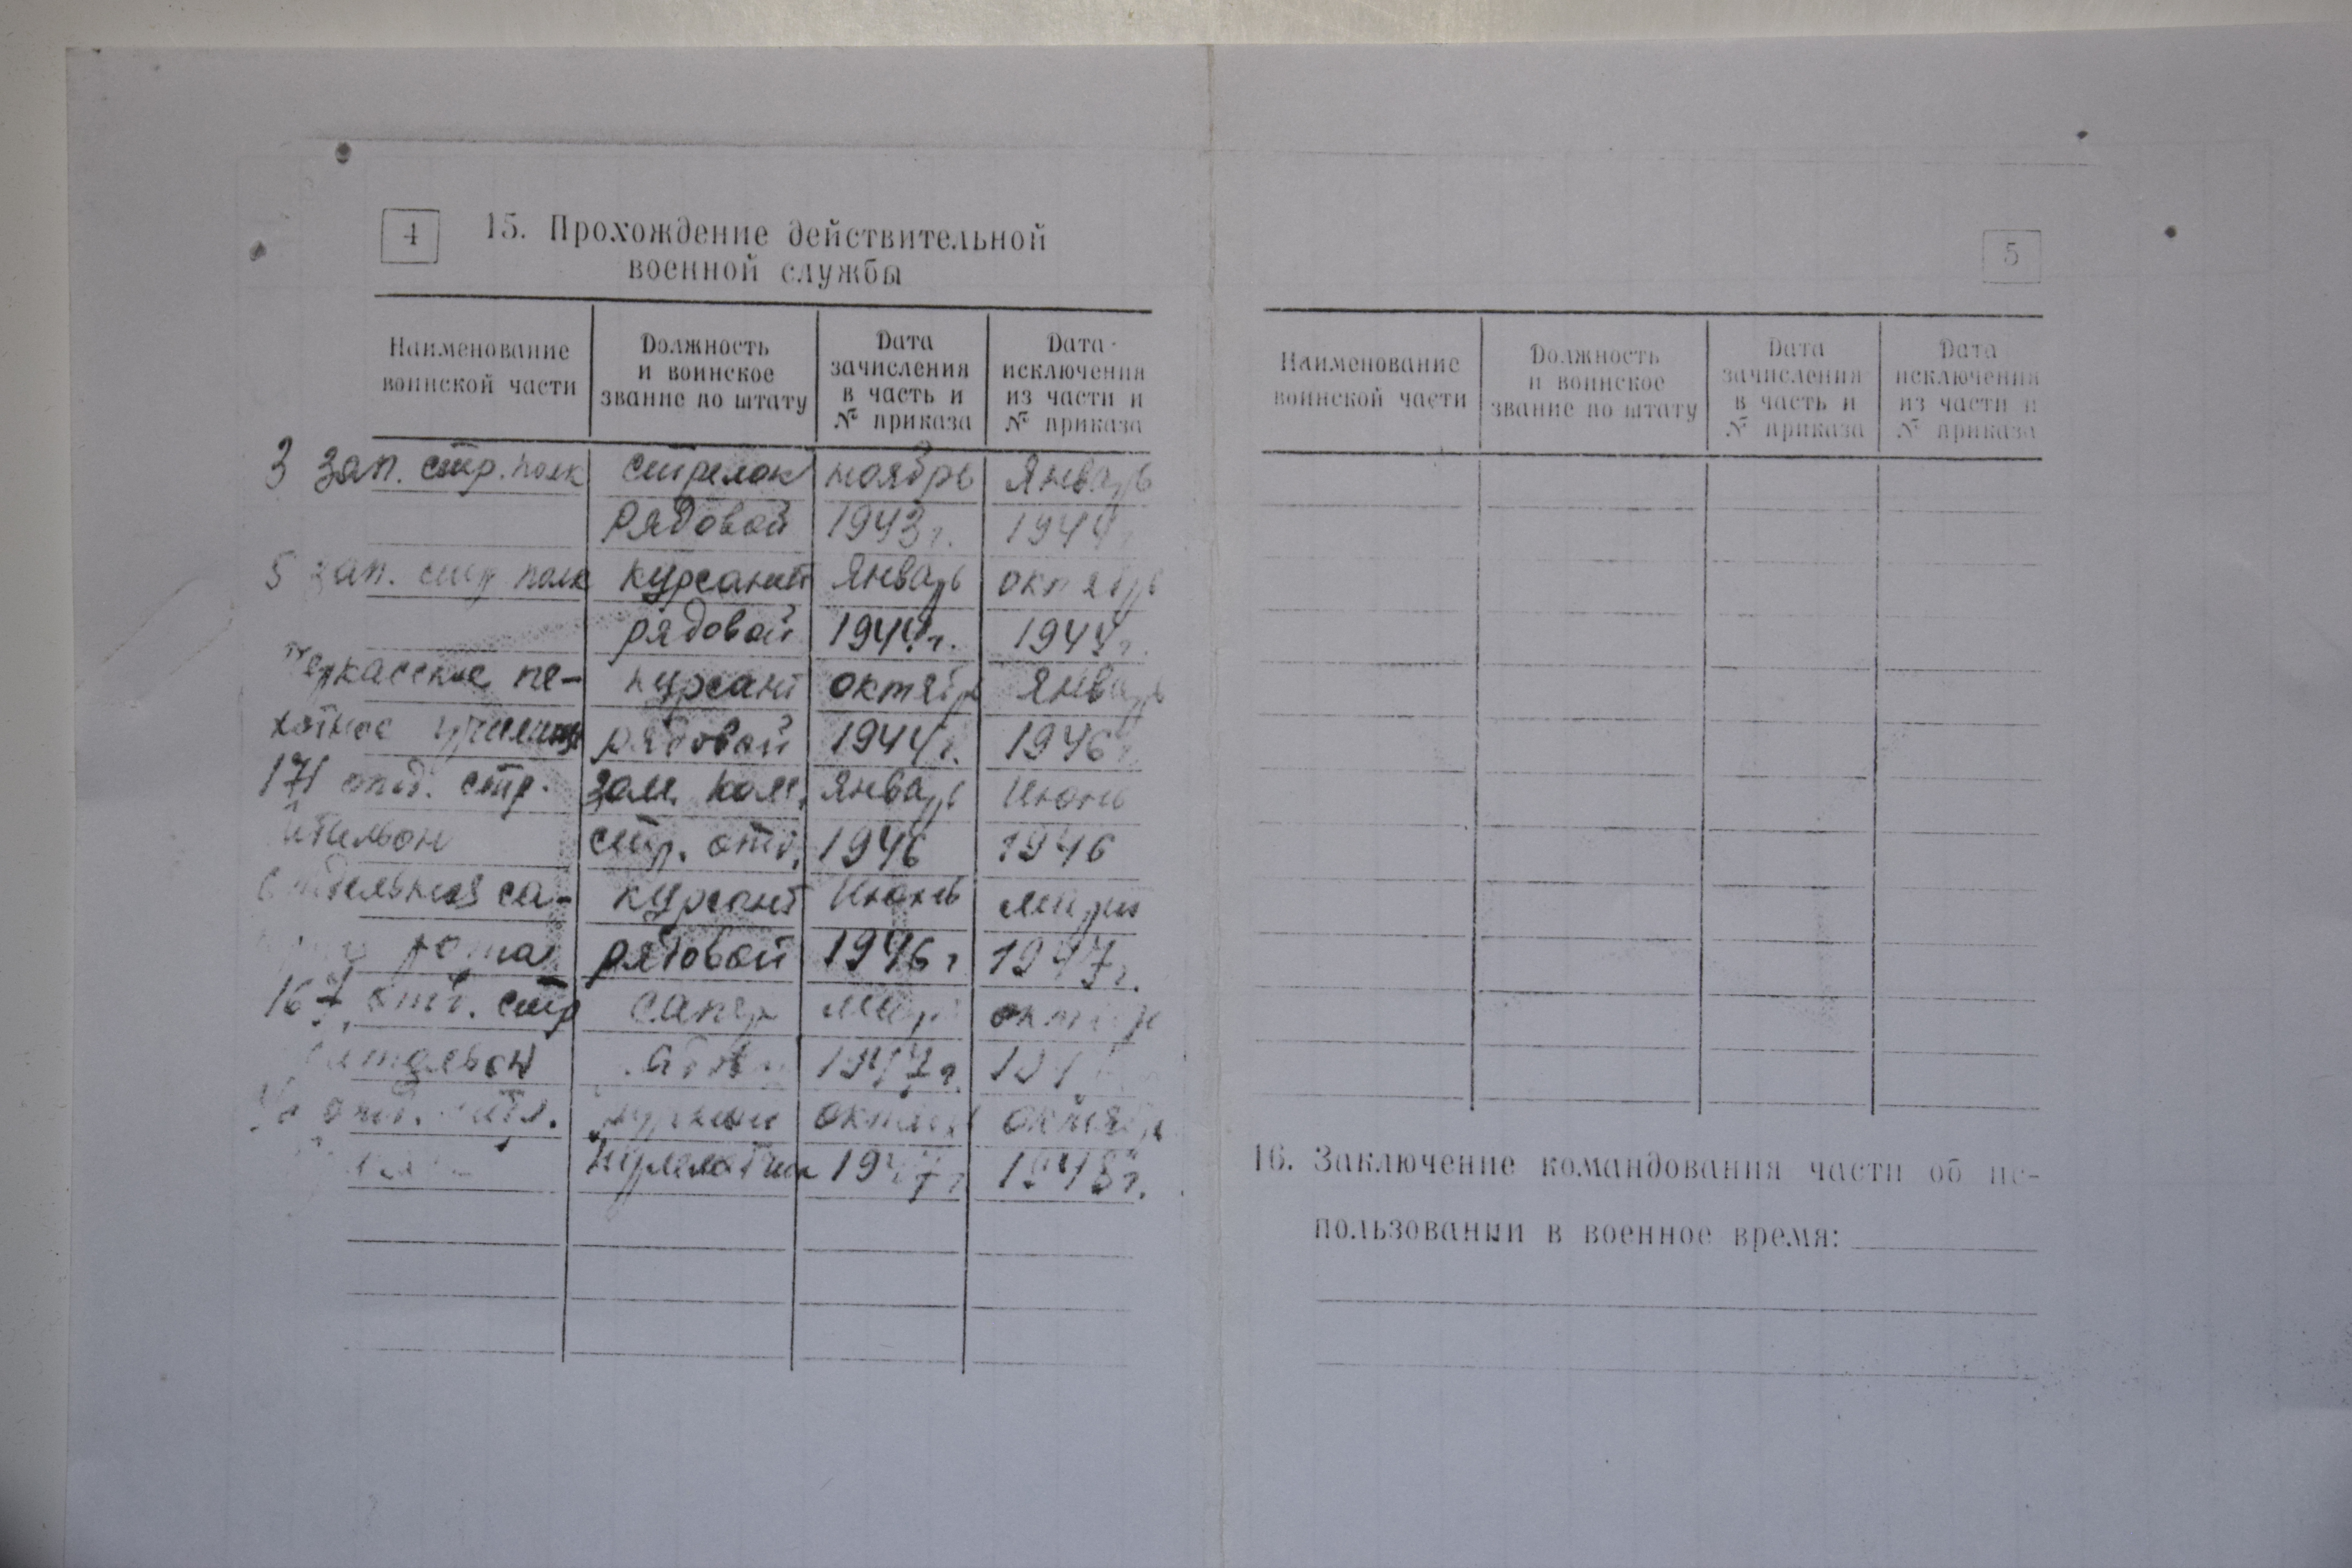 4
15. Прохождение действительной
военной службы
Наименование воинской части
Должность и воинское звание по штату
Дата зачисления в часть и № приказа
Дата исключения из части и № приказа
3 зап. стр. полк стрелок ноябрь январь
рядовой 1943 г. 1944
5 зап. стр полк курсант январь октябрь
рядовой 1944 г. 1944 г.
Черкасское пе- курсант октябрь январь
хотное училище рядовой 1944 г. 1946 г
171 отд. стр. зам. ком. январь июнь
стр. отд. 1946 1946
Отдельная са- курсант июнь март
рота рядовой 1946 г 1947 г.
167 отд. стр сапер март октябрь
батальон 1947 г.
отд. октябрь октябрь
1947 г 1948 г.
5
Наименование воинской части
Должность и воинское звание по штату
Дата зачисления в часть и № приказа
Дата исключения из части и № приказа
16. Заключение командования части об ис-
пользовании в военное время: